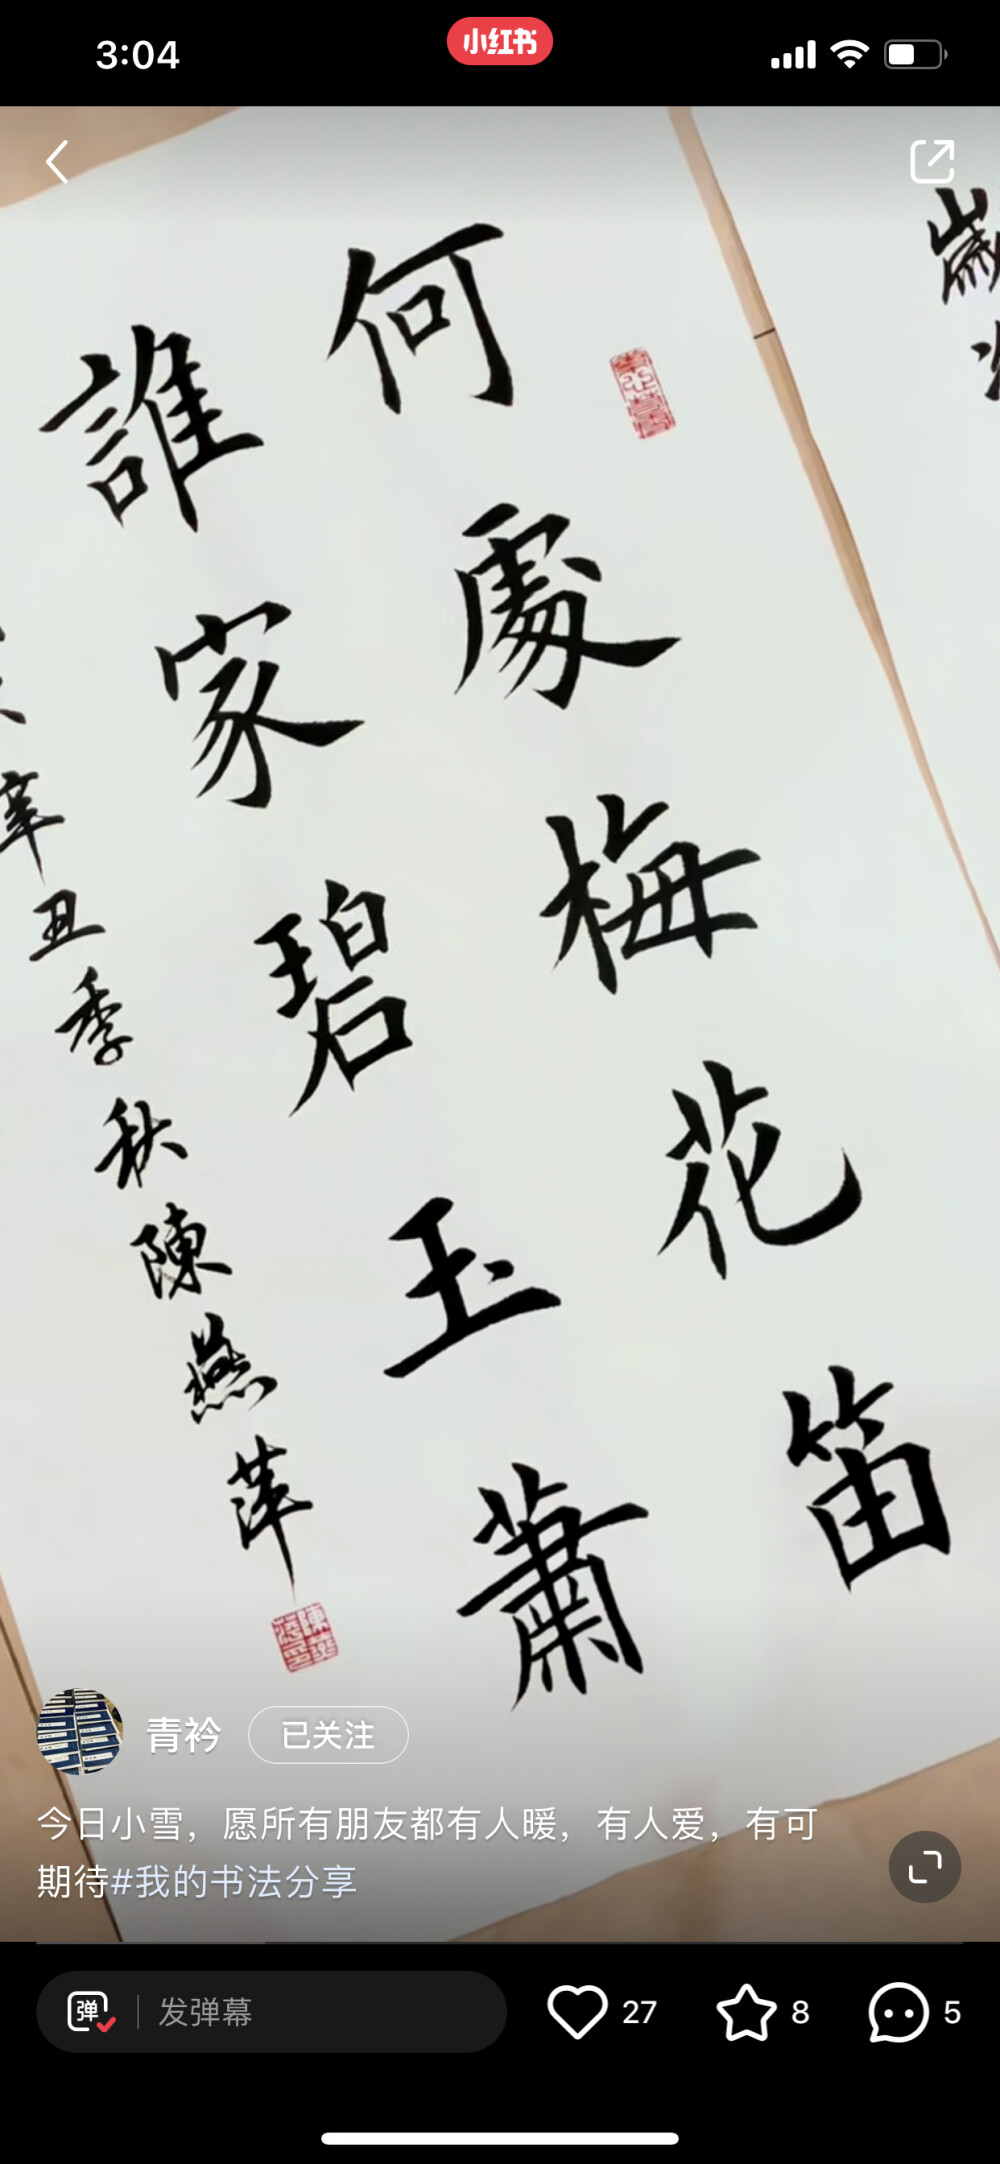 3:04
小红书
何處梅花笛
誰家碧玉蕭
辛丑季秋陳燕萍
歲
青衿
已关注
今日小雪，愿所有朋友都有人暖，有人爱，有可
期待#我的书法分享
弹
发弹幕
27
8
5